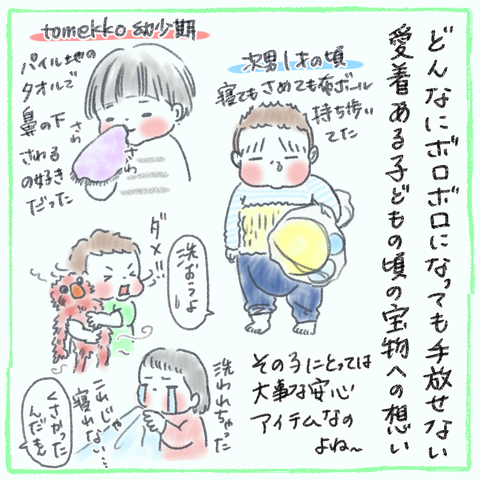 どんなにボロボロになっても手放せない
愛着ある子どもの頃の宝物への想い
tomekko 幼少期
パイル地の
タオルで
鼻の下
さわる
の好き
だった
さわ
さわ
次男1才の頃
寝てもさめても布ボール
持ち歩い
てた
ダメ!!
洗おうよ
洗われちゃった
これじゃ
寝れない…
くさかった
んだもん
その子にとっては
大事な安心
アイテムなの
よね〜